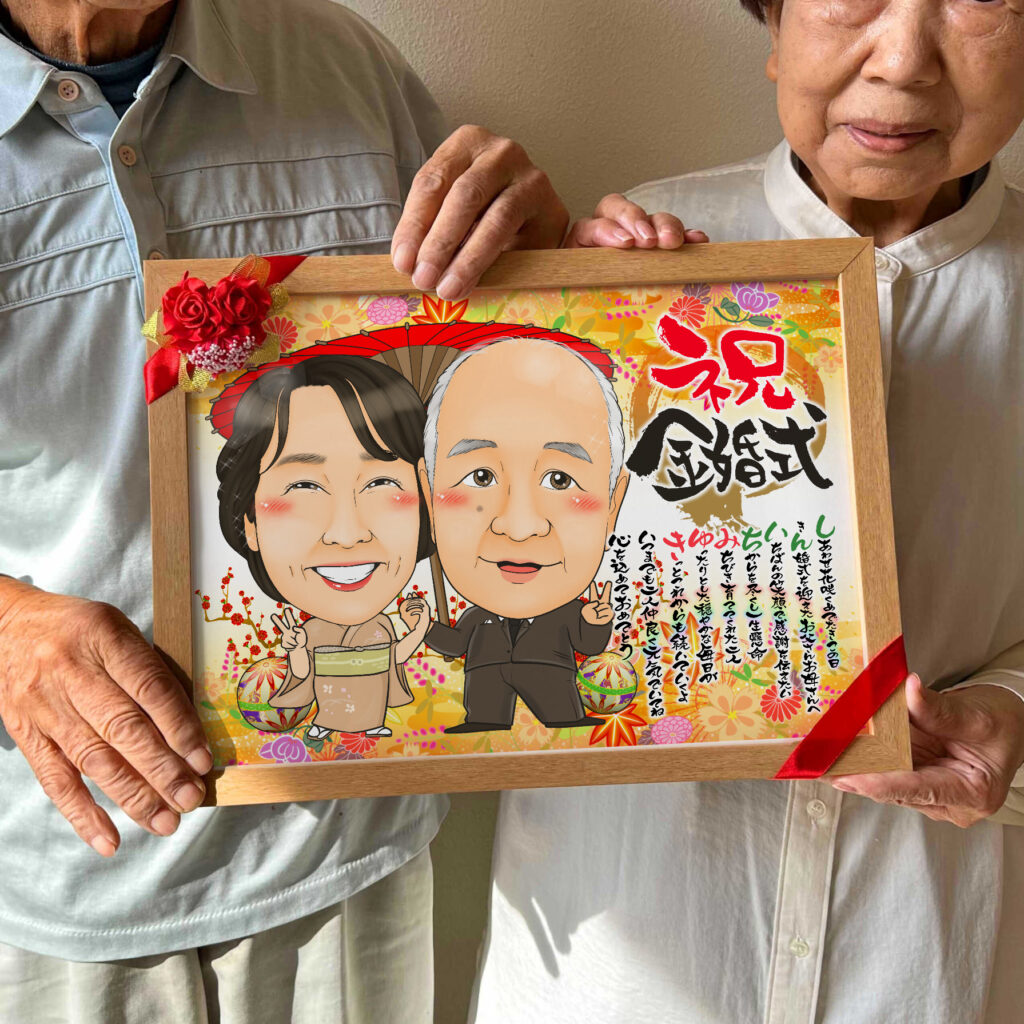 祝
金婚式
しあわせ花咲くめでたきこの日
きん婚式を迎えたお父さんお母さんへ
いちばんの笑顔で感謝を伝えたい
ちからを尽くし一生懸命
みちびき育ててくれた二人
ゆったりとした穏やかな毎日が
きっとこれからも続いていくよ
いつまでも二人仲良く元気でいてね
心を込めておめでとう